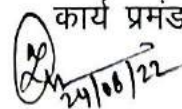 कार्य प्रमंड
24/06/22